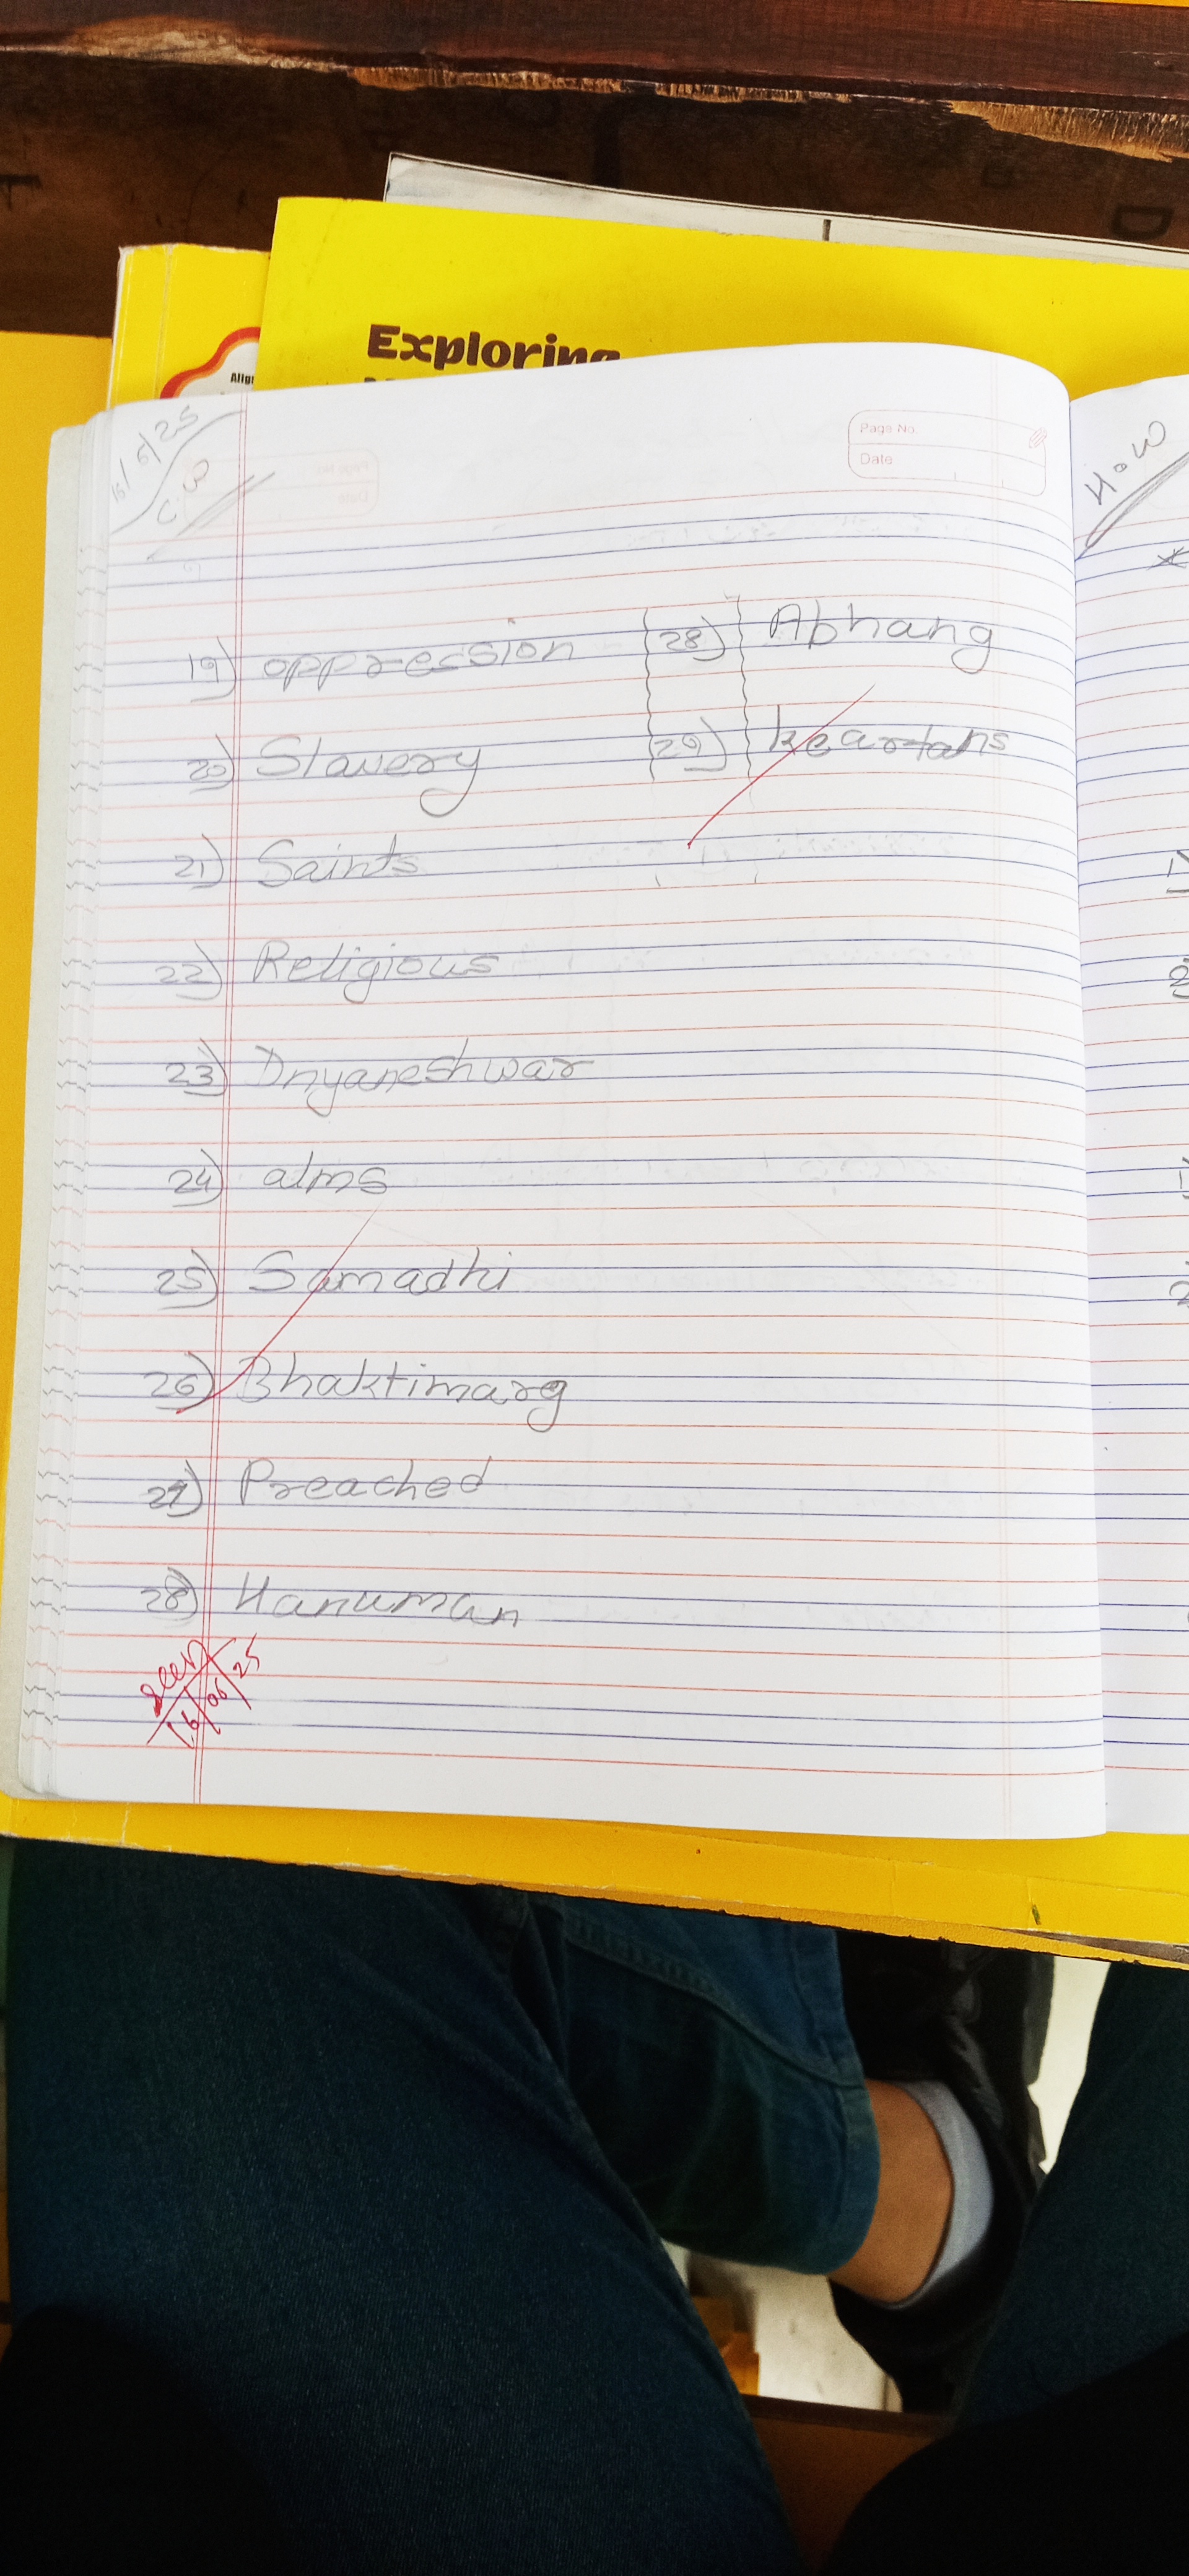 Exploring
Alig
16/6/25
C.W
Page No.
Date
H.W
19) oppression
20) Slavery
21) Saints
22) Religious
23) Dnyaneshwar
24) alms
25) Samadhi
26) Bhaktimarg
27) Preached
28) Hanuman
28) Abhang
29) keartans
seen
16/06/25